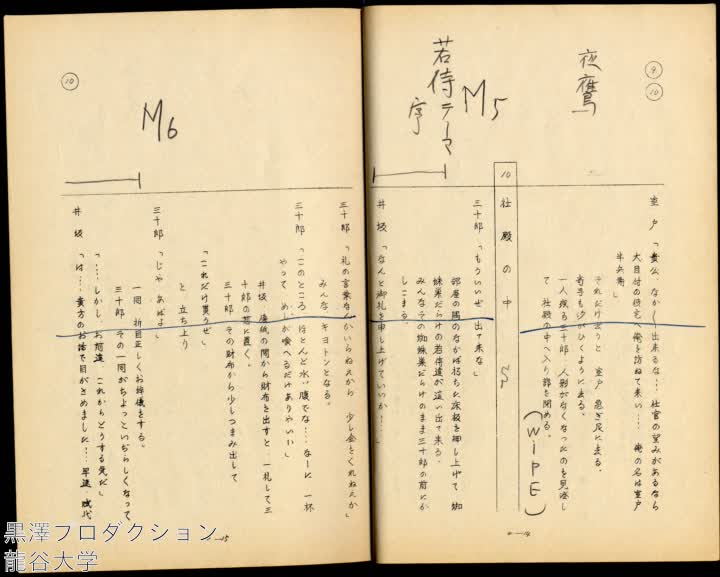 ⑨
⑩
夜鷹
M5
若侍テーマ
序
室戸「貴公、なかなか出来るな…仕官の望みがあるなら
大目付の役宅へ俺を訪ねて来い…俺の名は室戸
半兵衛」
それだけ言うと、室戸、急ぎ足に去る。
寄手も汐がひくように去る。
一人残る三十郎、人影がなくなったのを見澄し
て、社殿の中へ入り扉を閉める。
(WIPE)
10 社殿の中
三十郎「もういいぜ、出て来な」
部屋の隅のなかば朽ちた床板を押し上げて、蜘
蛛巣だらけの若侍達が這い出て来る。
みんなその蜘蛛巣だらけのまま三十郎の前にか
しこまる。
井坂「なんと御礼を申し上げていいか…」
⑩
M6
三十郎「礼の言葉なんかいらねえから、少し金をくれねえか」
みんな、キョトンとなる。
三十郎「このところ、ほとんど水ッ腹でな…なーに、一杯
やって、めしが喰へるだけありやいい」
井坂、懐紙の間から財布を出すと、一礼して三
十郎の前に置く。
三十郎、その財布から少しつまみ出して
「これだけ貰うぜ」
と、立ち上り
三十郎「じゃ、あばよ」
一同、折目正しくお辞儀をする。
三十郎、その一同がちょっといじらしくなって
「……しかし、お前達、これからどうする気だ」
井坂「は…貴方のお話で目がさめました…早速、城代
a—14
a—15
黒澤プロダクション
龍谷大学